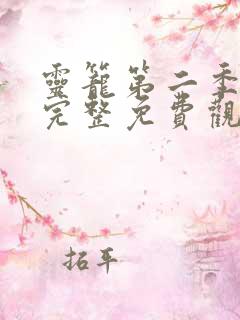 靈籠第二季
完整免費觀
拓平